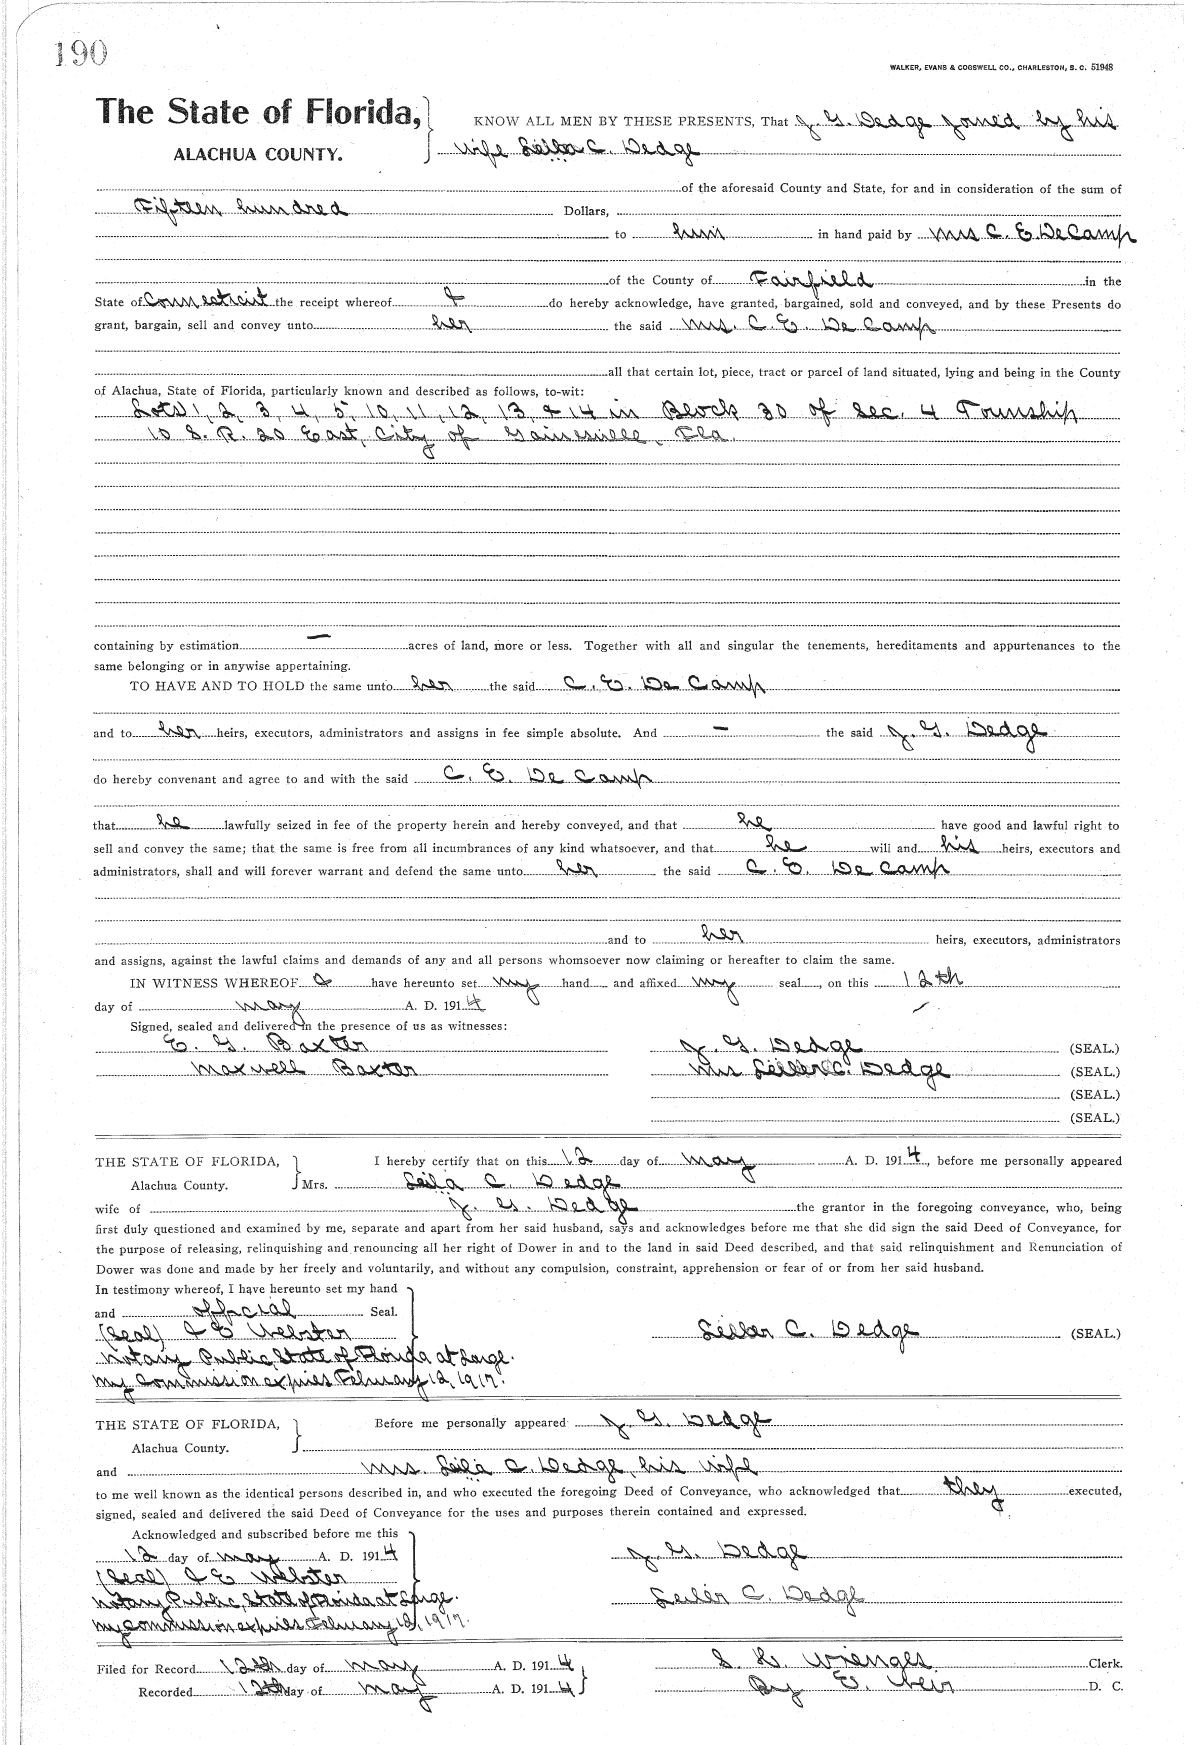 190
WALKER, EVANS & COGSWELL CO., CHARLESTON, S. C. 51948
The State of Florida,
ALACHUA COUNTY.
KNOW ALL MEN BY THESE PRESENTS, That J. G. Dedge joined by his
wife Leila C. Dedge
of the aforesaid County and State, for and in consideration of the sum of
Fifteen hundred Dollars,
to him in hand paid by Mrs C. E. DeCamp
of the County of Fairfield in the
State of Connecticut the receipt whereof I do hereby acknowledge, have granted, bargained, sold and conveyed, and by these Presents do
grant, bargain, sell and convey unto her the said Mrs. C. E. De Camp
all that certain lot, piece, tract or parcel of land situated, lying and being in the County
of Alachua, State of Florida, particularly known and described as follows, to-wit:
Lots 1, 2, 3, 4, 5, 10, 11, 12, 13 & 14 in Block 30 of Sec. 4 Township
10 S. R. 20 East, City of Gainesville, Fla.
containing by estimation — acres of land, more or less. Together with all and singular the tenements, hereditaments and appurtenances to the
same belonging or in anywise appertaining.
TO HAVE AND TO HOLD the same unto her the said C. E. De Camp
and to her heirs, executors, administrators and assigns in fee simple absolute. And — the said J. G. Dedge
do hereby convenant and agree to and with the said C. E. De Camp
that he lawfully seized in fee of the property herein and hereby conveyed, and that he have good and lawful right to
sell and convey the same; that the same is free from all incumbrances of any kind whatsoever, and that he will and his heirs, executors and
administrators, shall and will forever warrant and defend the same unto her the said C. E. De Camp
and to her heirs, executors, administrators
and assigns, against the lawful claims and demands of any and all persons whomsoever now claiming or hereafter to claim the same.
IN WITNESS WHEREOF I have hereunto set my hand and affixed my seal, on this 12th
day of May A. D. 1914
Signed, sealed and delivered in the presence of us as witnesses:
E. G. Baxter J. G. Dedge (SEAL.)
Maxwell Baxter Mrs Leila C. Dedge (SEAL.)
(SEAL.)
(SEAL.)
THE STATE OF FLORIDA, I hereby certify that on this 12 day of May A. D. 1914, before me personally appeared
Alachua County. Mrs. Leila C. Dedge
wife of J. G. Dedge the grantor in the foregoing conveyance, who, being
first duly questioned and examined by me, separate and apart from her said husband, says and acknowledges before me that she did sign the said Deed of Conveyance, for
the purpose of releasing, relinquishing and renouncing all her right of Dower in and to the land in said Deed described, and that said relinquishment and Renunciation of
Dower was done and made by her freely and voluntarily, and without any compulsion, constraint, apprehension or fear of or from her said husband.
In testimony whereof, I have hereunto set my hand
and official Seal.
(Seal) I E Webster Leila C. Dedge (SEAL.)
Notary Public, State of Florida at Large.
My Commission expires February 12, 1917.
THE STATE OF FLORIDA, Before me personally appeared J. G. Dedge
Alachua County.
and Mrs. Leila C. Dedge, his wife
to me well known as the identical persons described in, and who executed the foregoing Deed of Conveyance, who acknowledged that they executed,
signed, sealed and delivered the said Deed of Conveyance for the uses and purposes therein contained and expressed.
Acknowledged and subscribed before me this
12 day of May A. D. 1914 J. G. Dedge
(Seal) I E Webster
Notary Public, State of Florida at Large. Leila C. Dedge
My Commission expires February 12, 1917.
Filed for Record 12th day of May A. D. 1914 S. H. Wienges Clerk.
Recorded 12th day of May A. D. 1914 By E. Weir D. C.